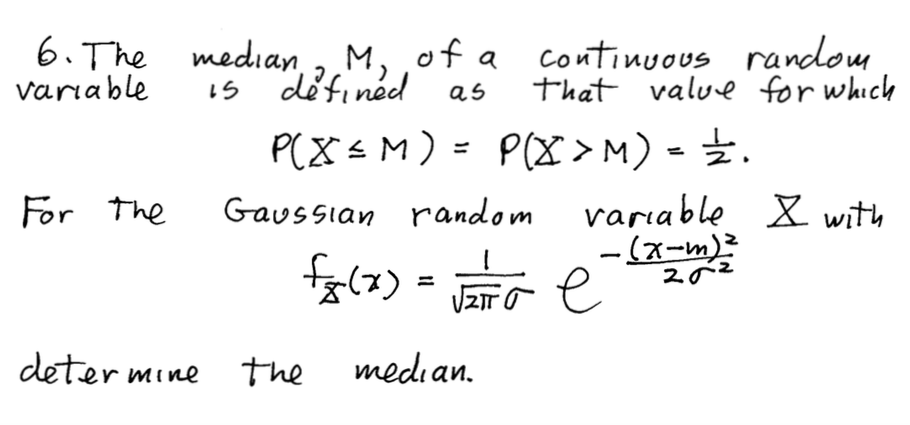 6. The median, M, of a continuous random
variable is defined as that value for which
P(X ≤ M) = P(X > M) = 1/2.
For the Gaussian random variable X with
f_X(x) = 1/(√2π σ) e^{-(x-m)²/2σ²}
determine the median.